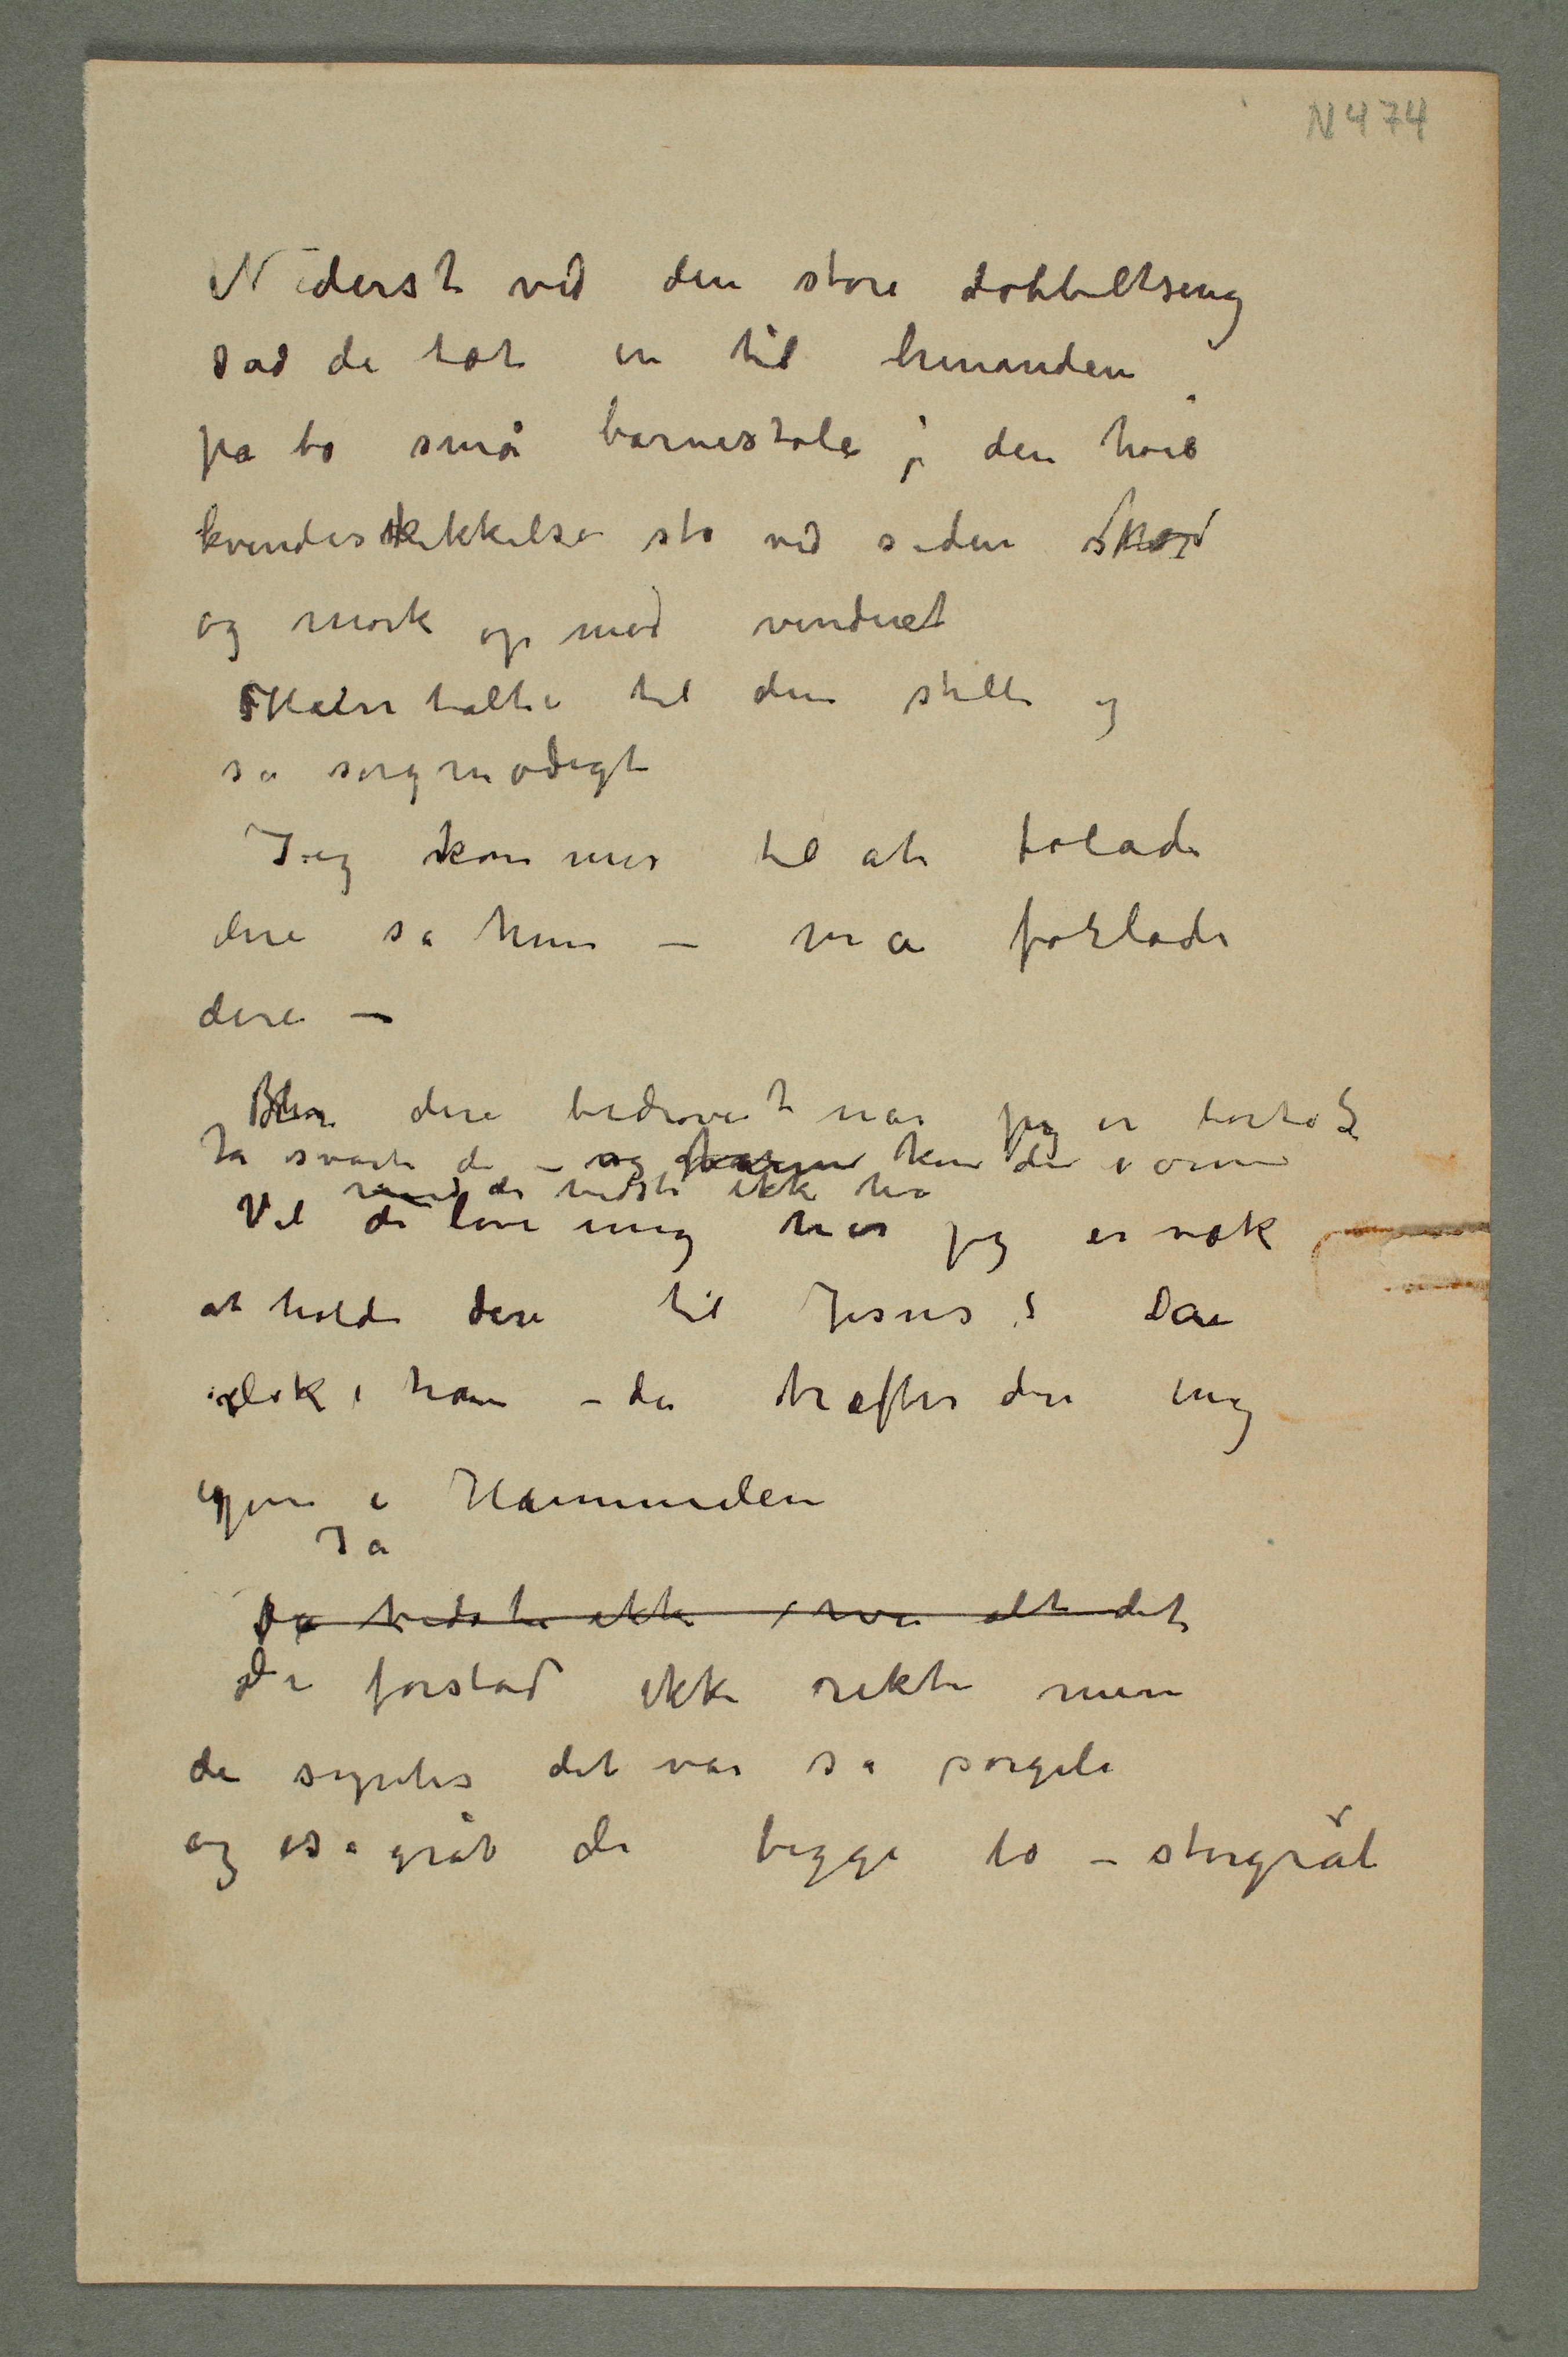 N 474
Nederst ved den store dobbeltseng
sad de tæt in til hinanden
på to små barnestole; den høie
kvindeskikkelse sto ved siden stor
og mørk op mod vinduet
talte til dem stille og
så sørgmodigt
Jeg kommer til at folade
dere sa hun – må forlade
dere –
Blir dere bedrøvet når jeg er borte?
Ja svarte de – og kom de i øine
de vidste ikke hva
Vil di love mig når jeg er væk
at holde dere til Jesus
i ham – da træffer dere mig
igjen i Himmelen
Ja
De vidste ikke hva alt det
De forstod ikke rikti men
de syntes det var så sørgeli
og så gråt de begge to – storgråt